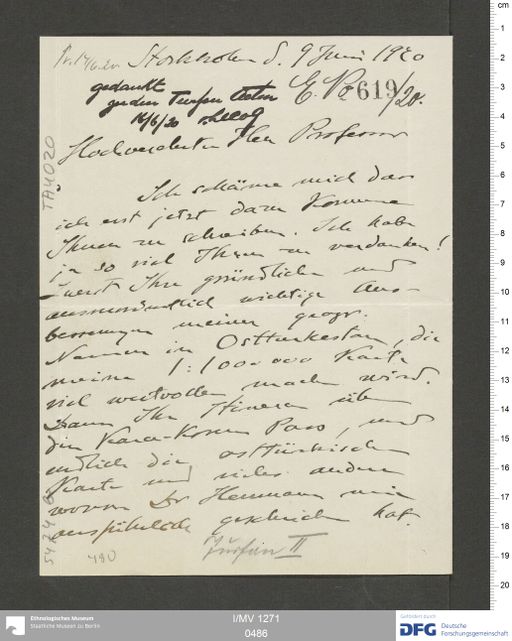 Stockholm d. 9 Juni 1920
E. No 619/20.
gedankt
zu den Turfan Akten
16/6/20 v. Lecoq
Hochverehrter Herr Professor
Ich schäme mich das
ich erst jetzt dazu komme
Ihnen zu schreiben. Ich habe
ja so viel Ihnen zu verdanken!
Zuerst Ihre gründliche und
ausserordentlich wichtige Aus-
besserungen meiner geogr.
Namen in Ostturkestan, die
meine 1:1000000 Karte
viel wertvoller machen wird.
Dann Ihr Itinerar über
die Kara-Korum Pass, und
endlich die osttürkische
Karte und vieles andere
wovon Dr Herrmann mir
ausführlich geschrieben hat.
Turfan II
TA4020
5424 6
480
cm
1
2
3
4
5
6
7
8
9
10
11
12
13
14
15
16
17
18
19
20
Ethnologisches Museum
Staatliche Museen zu Berlin
I/MV 1271
0486
Gefördert durch
DFG Deutsche
Forschungsgemeinschaft